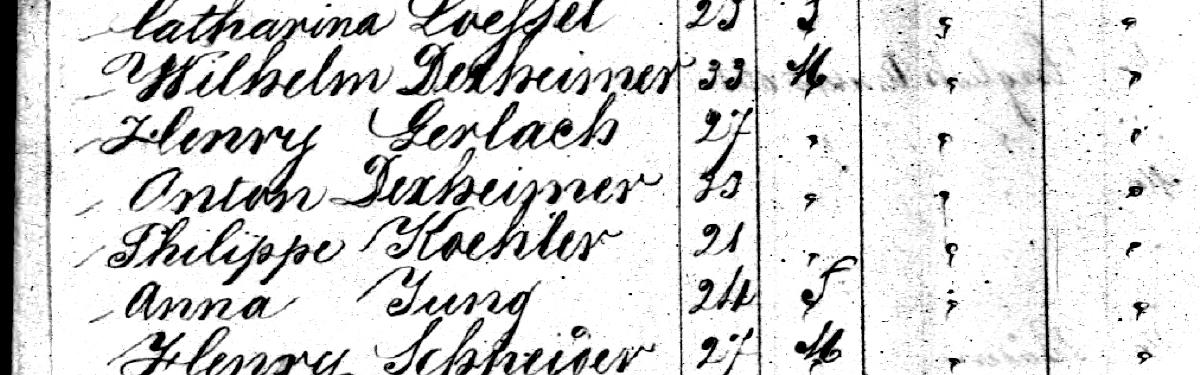 Catharina Loeffel 23 f " "
Wilhelm Dexheimer 33 M " "
Henry Gerlach 27 " " "
Anton Dexheimer 33 " " "
Philippe Koehler 21 " " "
Anna Jung 24 f " "
Henry Schneider 27 M " "